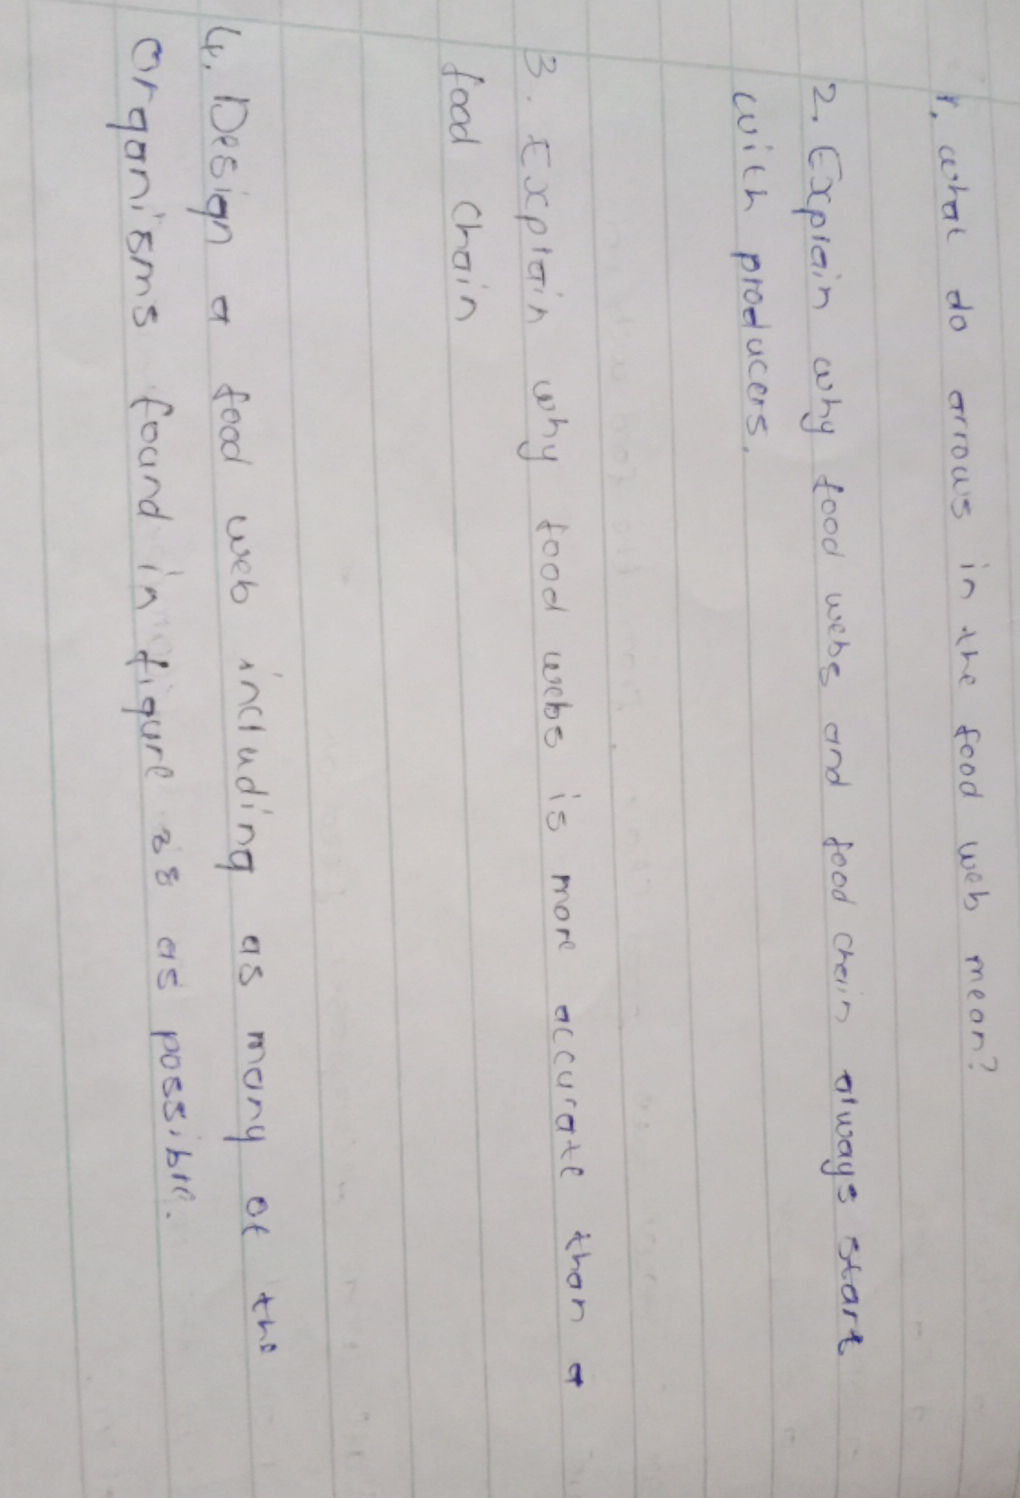 1. what do arrows in the food web mean?
2. Explain why food webs and food chain always start
with producers.
3. Explain why food webs is more accurate than a
food chain
4. Design a food web including as many of the
organisms found in figure 28 as possible.